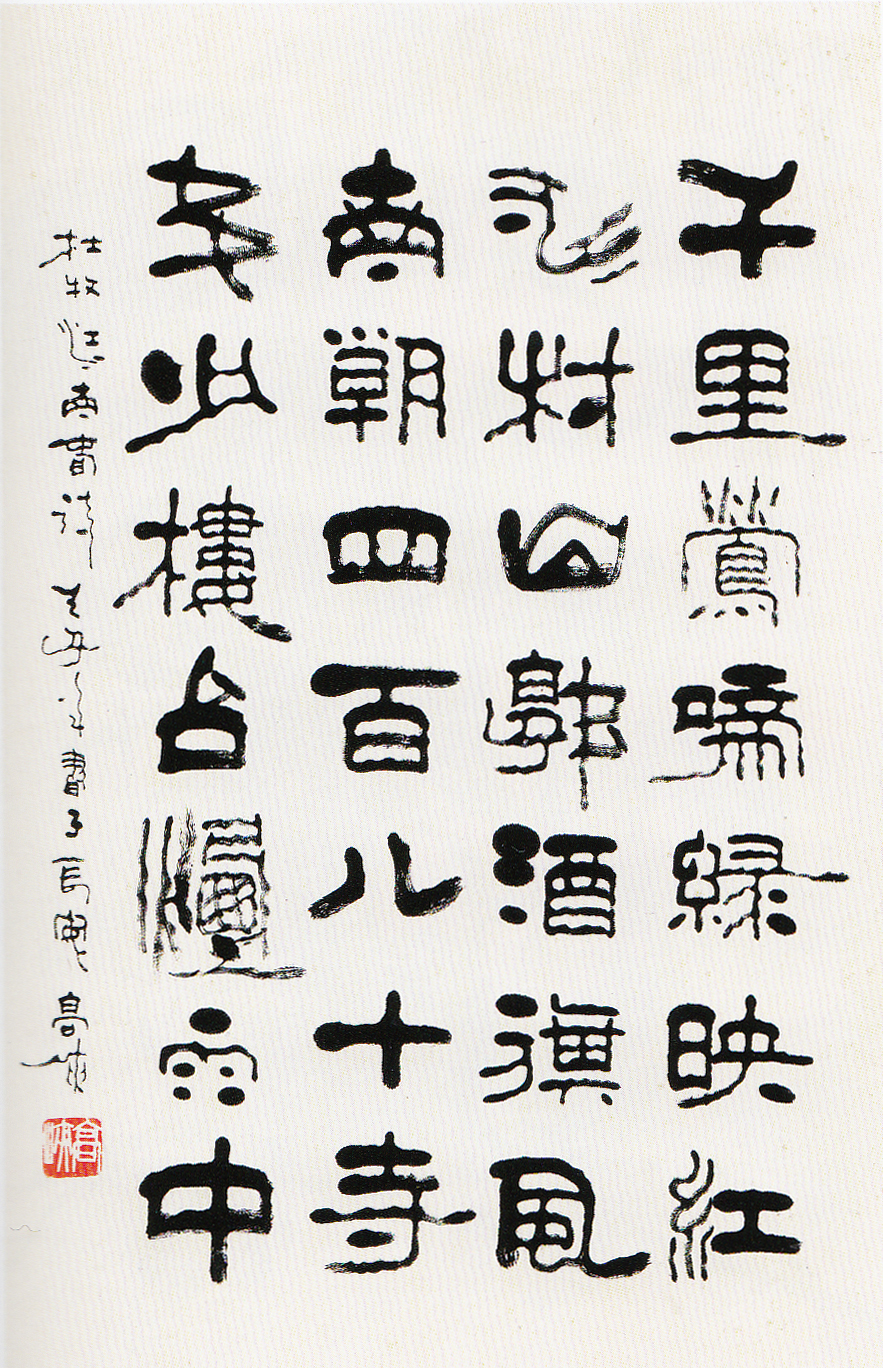 千里鶯啼緑映紅
水村山郭酒旗風
南朝四百八十寺
多少樓台煙雨中
杜牧江南春詩 書于長安 高峽